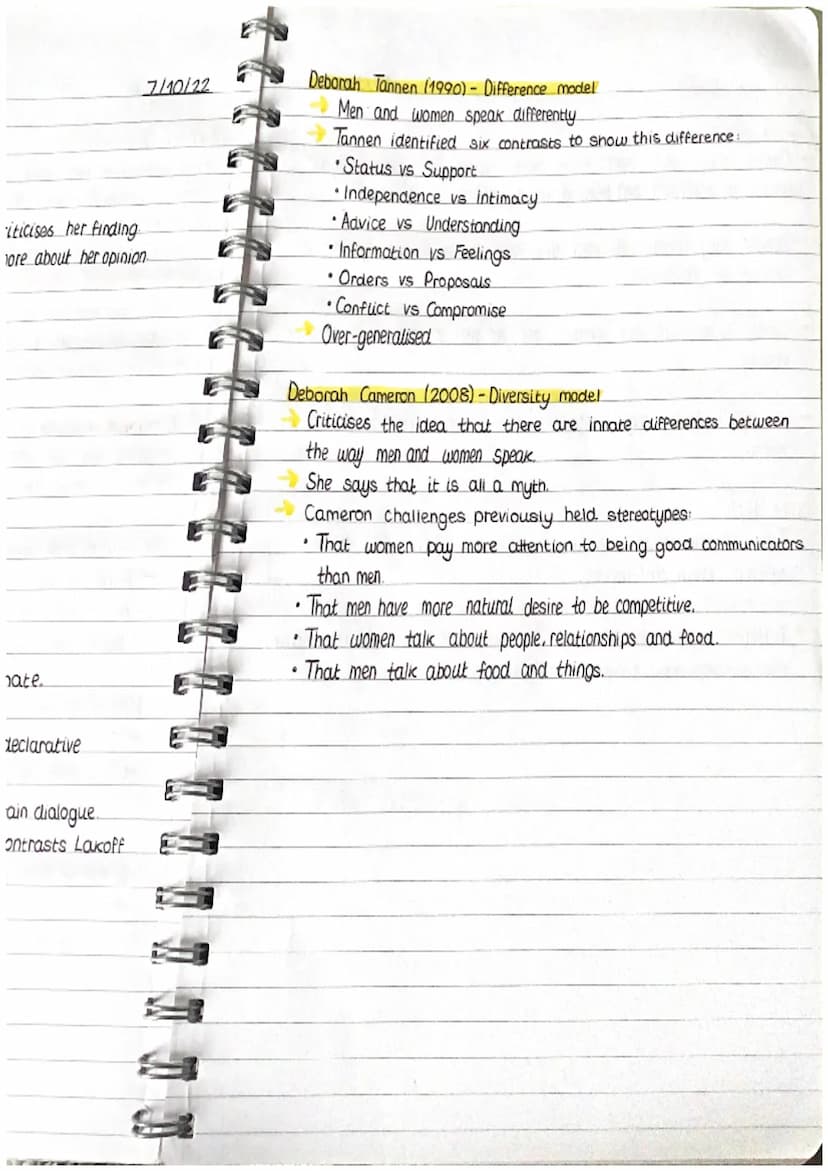 7/10/22
iticises her finding
ore about her opinion
nate.
declarative
ain dialogue.
ontrasts Lakoff
Deborah Tannen (1990) - Difference model
→ Men and women speak differently
→ Tannen identified six contrasts to show this difference:
• Status vs Support
• Independence vs Intimacy
• Advice vs Understanding
• Information vs Feelings
• Orders vs Proposals
• Conflict vs Compromise
→ Over-generalised
Deborah Cameron (2008) - Diversity model
→ Criticises the idea that there are innate differences between
the way men and women speak.
→ She says that it is all a myth.
→ Cameron challenges previously held stereotypes:
• That women pay more attention to being good communicators
than men.
• That men have more natural desire to be competitive.
• That women talk about people, relationships and food.
• That men talk about food and things.